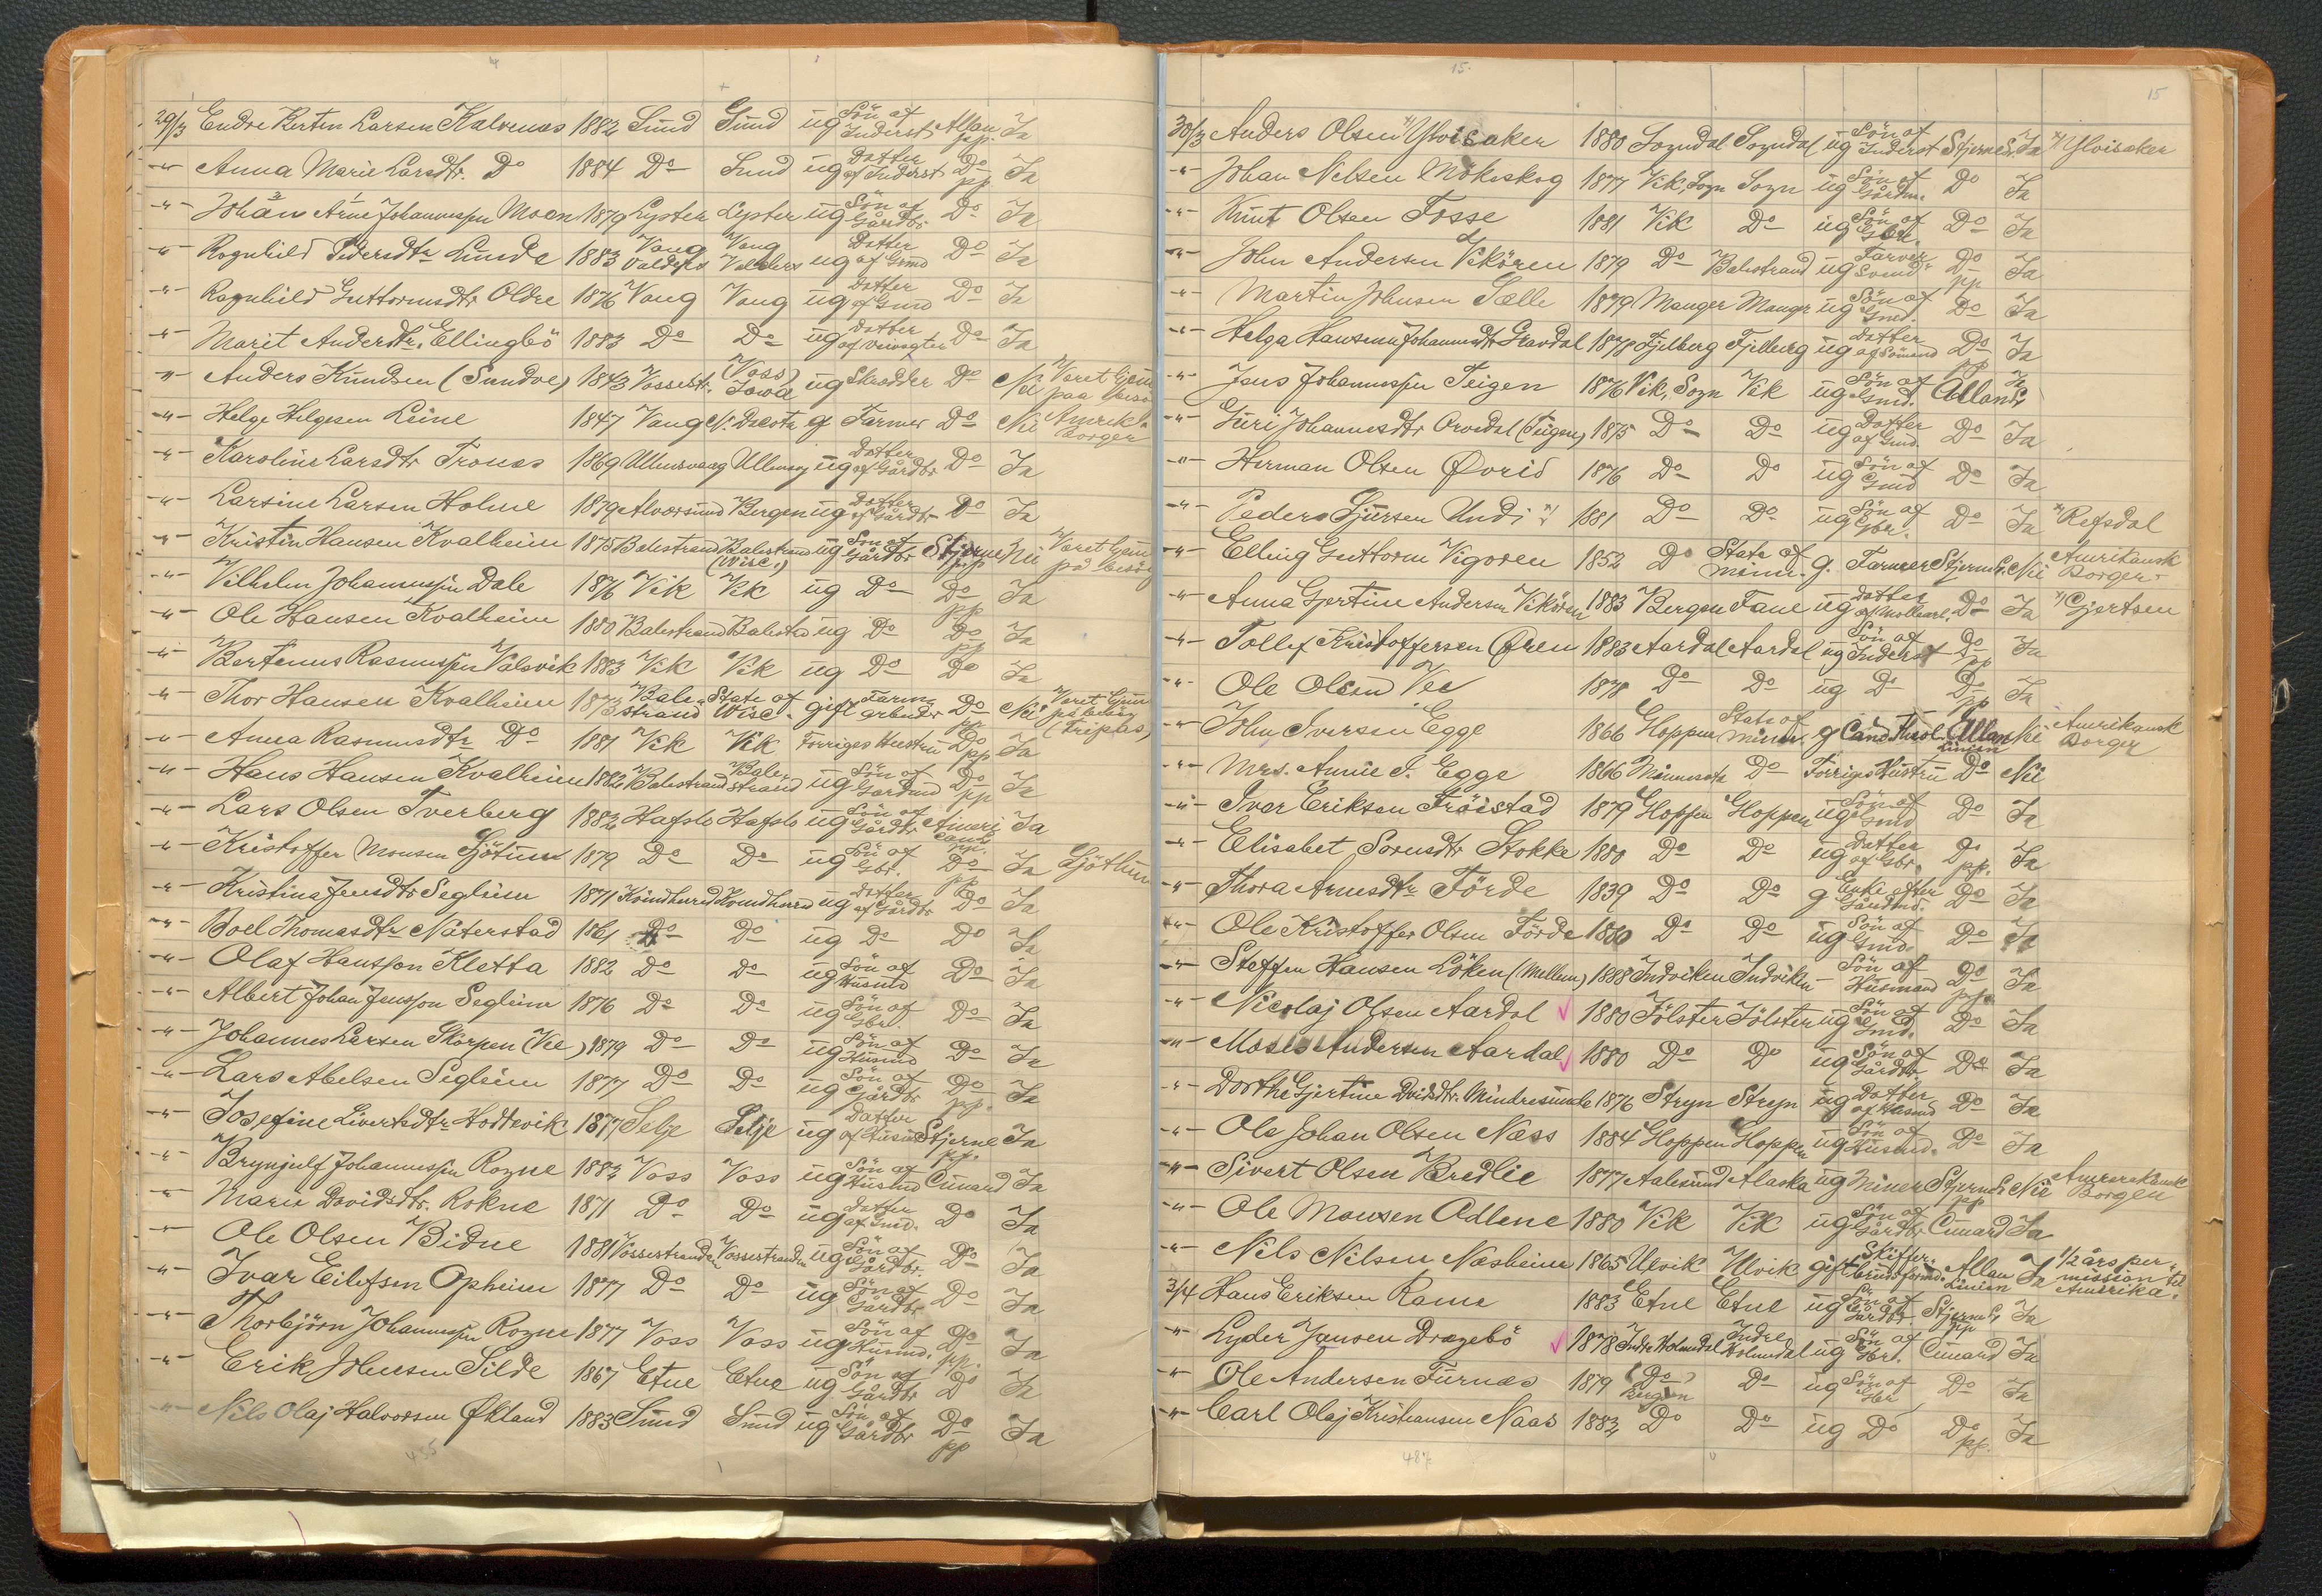 29/3 Endre Bertin Larsen Kalvenes 1882 Sund Sund ug Sön af Inderst Allan pp. Ja
-"- Anna Marie Larsdtr. Do 1884 Do Sund ug Datter af Inderst Do pp Ja
-"- Johan Arne Johannessen Moen 1879 Lyster Lyster ug Sön af Gårdbr. Do Ja
-"- Ragnhild Pedersdtr Lunde 1883 Vang Valders Vang Valders ug Datter af Gmd Do Ja
-"- Ragnhild Guttormsdtr. Oldre 1876 Vang Vang ug Datter af Gmd Do Ja
-"- Marit Andersdtr. Ellingbö 1883 Do Do ug Datter af Veivogter Do Ja
-"- Anders Knudsen (Sundve) 1843 Vossestr. (Voss) Iowa ug Skrædder Do Nei Været hjem paa besög
-"- Helge Helgesen Leine 1847 Vang N. Dacota g Farmer Do Nei Amerik. Borger
-"- Karoline Larsdtr Tronæs 1869 Ullensvang Ullensvg ug Datter af Gårdbr Do Ja
-"- Larsine Larsen Holme 1879 Alversund Bergen ug Datter af Gårdbr Do Ja
-"- Kristin Hansen Kvalheim 1875 Balestrand Balestrand (Wisc.) ug Sön af Gårdbr Stjerne pp Nei Været hjem på besög
-"- Vilhelm Johannessen Dale 1876 Vik Vik ug Do Do pp Ja
-"- Ole Hansen Kvalheim 1880 Balestrand Balestrd ug Do Do pp Ja
-"- Bertinus Rasmussen Valsvik 1883 Vik Vik ug Do Do Ja
-"- Thor Hansen Kvalheim 1873 Balestrand State of Wisc. gift Farmarbeider Do pp Nei Været hjem på besög (Friplas)
-"- Anna Rasmusdtr Do 1881 Vik Vik Forriges Hustru Do pp Ja
-"- Hans Hansen Kvalheim 1882 Balestrand Balestrand ug Sön af Gardmd Do pp Ja
-"- Lars Olsen Tverberg 1882 Hafslo Hafslo ug Sön af Gårdbr Americ Line pp. Ja
-"- Kristoffer Monsen Sjötun 1879 Do Do ug Sön af Gbr. Do pp Ja Sjöthun
-"- Kristina Jensdtr Seglem 1871 Kvindherred Kvindherrd ug Datter af Gårdbr Do Ja
-"- Boel Thomasdtr Naterstad 1861 Do Do ug Do Do Ja
-"- Olaf Hansson Kletta 1882 Do Do ug Sön af Husmd Do Ja
-"- Albert Johan Jensson Seglem 1876 Do Do ug Sön af Gbr. Do Ja
-"- Johannes Larsen Skorpen (Vee) 1879 Do Do ug Sön af Husmd Do Ja
-"- Lars Abelsen Seglem 1877 Do Do ug Sön af Gårdbr Do pp. Ja
-"- Josefine Sivertsdtr Hoddevik 1877 Selje Selje ug Datter af Husmd Stjerne pp. Ja
-"- Brynjulf Johannessen Rogne 1882 Voss Voss ug Sön af Husmd Cunard Ja
-"- Marie Davidsdtr. Rokne 1871 Do Do ug Datter af Gmd. Do Ja
-"- Ole Olsen Bidne 1881 Vossestranden Vossestranden ug Sön af Gårdbr. Do Ja
-"- Ivar Eilefsen Opheim 1877 Do Do ug Sön af Gårdbr Do Ja
-"- Thorbjörn Johannessen Rogne 1877 Voss Voss ug Sön af Husmd. Do pp. Ja
-"- Erik Johnsen Silde 1867 Etne Etne ug Sön af Gårdbr Do Ja
-"- Nils Olaj Halvorsen Økland 1883 Sund Sund ug Sön af Gårdbr Do pp Ja
15
30/3 Anders Olsen x) Ylvisaker 1880 Sogndal Sogndal ug Sön af Inderst Stjerne L. Ja x) Ylvisaker
-"- Johan Nelsen Mökeskog 1877 Vik, Sogn Sogn ug Sön af Gårdm. Do Ja
-"- Knut Olsen Fosse 1881 Vik Do ug Sön af Gbr. Do Ja
-"- John Andersen Vikören 1879 Do Balestrand ug Farver Svend Do pp Ja
-"- Martin Johnsen Sælle 1879 Manger Mangr ug Sön af Gmd. Do Ja
-"- Helga Hansenn Johannesdtr Gravdal 1878 Fjelberg Fjelberg ug Datter af Sömand Do pp Ja
-"- Jens Johannessen Teigen 1876 Vik, Sogn Vik ug Sön af Gmd. Allan L Ja
-"- Guri Johannesdtr Orvedal (Teigen) 1875 Do Do ug Datter af Gmd. Do Ja
-"- Herman Olsen Øvrid 1876 Do Do ug Sön af Gmd Do Ja
-"- Peder Sjursen Undi x) 1881 Do Do ug Sön af Gbr. Do Ja x) Refsdal
-"- Elling Guttorm Vigoren 1852 Do State of Minn. g. Farmer Stjerne L. Nei Amerikansk Borger
-"- Anna Gjertine Andersen Vikören 1883 Bergen Fane ug Datter af Mollearb. Do Ja x) Gjertsen
-"- Tollef Kristoffersen Øren 1883 Aardal Aardal ug Sön af Inderst Do pp Ja
-"- Ole Olsen Vee 1878 Do Do ug Do Do pp Ja
-"- John Iversen Egge 1866 Gloppen State of Minn. g Cand. Theol. Allan Linien Nei Amerikansk Borger
-"- Mrs. Annie I. Egge 1866 Minnesota Do Forriges Hustru Do Nei
-"- Iver Eriksen Fröistad 1879 Gloppen Gloppen ug Sön af Gmd Do Ja
-"- Elisabet Sorusdtr Stokke 1880 Do Do ug Datter af Gbr. Do pp. Ja
-"- Thora Arnesdtr Förde 1839 Do Do g Enke efter Gårdmd. Do Ja
-"- Ole Kristoffer Olsen Förde 1880 Do Do ug Sön af Gmd. Do Ja
-"- Steffen Hansen Löken (Mellem) 1888 Indviken Indviken - Sön af Husmand Do pp. Ja
-"- Nicolaj Olsen Aardal 1880 Jölster Jölster ug Sön af Gmd. Do Ja
-"- Moses Andersen Aardal 1880 Do Do ug Sön af Gårdbr. Do Ja
-"- Dorthe Gjertine Dvidsdtr. Mindresunde 1876 Stryn Stryn ug Datter af Husmd Do Ja
-"- Ole Johan Olsen Næss 1884 Gloppen Gloppen ug Sön af Husmd. Do Ja
-"- Sivert Olsen Bredlie 1877 Aalesund Alaska ug Miner Stjerne L. pp Nei Amerikansk Borger
-"- Ole Monsen Odlene 1880 Vik Vik ug Sön af Gårdbr Cunard Ja
-"- Nils Nilsen Næsheim 1865 Ulvik Ulvik gift Skiferbrudsformd. Allan Linien Ja 1/2 års permission til Amerika.
3/4 Hans Eriksen Rame 1883 Etne Etne ug Sön af Gårdbr. Stjerne L pp Ja
-"- Lyder Jansen Dragebö 1878 Indre Holmedal Indre Holmedal ug Sön af Gbr. Cunard Ja
-"- Ole Andersen Furnæs 1879 (Do) Bergen Do ug Sön af Gbr Do Ja
-"- Carl Olaj Kristiansen Naas 1883 Do Do ug Do Do pp. Ja